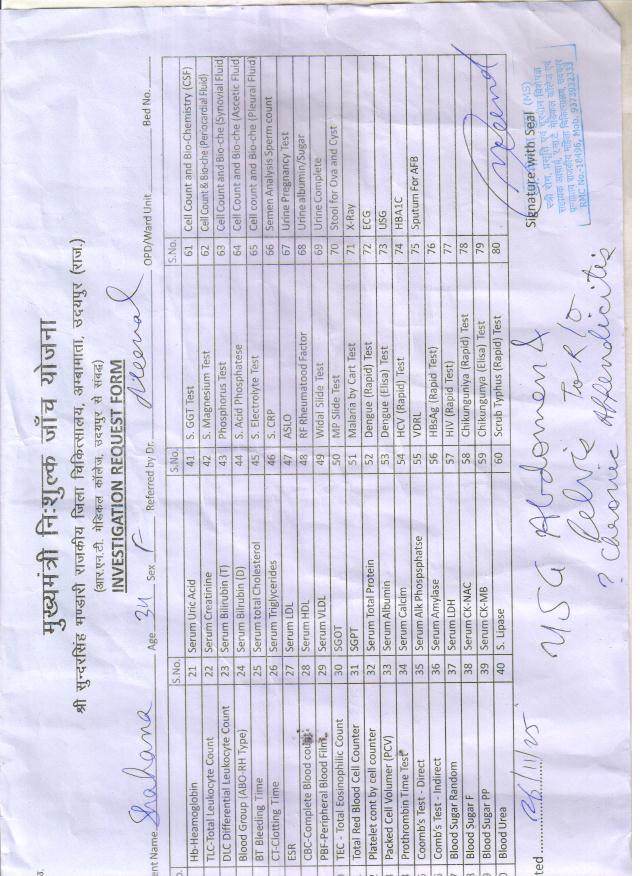 मुख्यमंत्री निःशुल्क जाँच योजना
श्री सुन्दरसिंह भण्डारी राजकीय जिला चिकित्सालय, अम्बामाता, उदयपुर (राज.)
(आर.एन.टी. मेडिकल कॉलेज, उदयपुर से संबद्ध)
INVESTIGATION REQUEST FORM
ent Name Shahana Age 34 Sex F Referred by Dr. OPD/Ward Unit Bed No.
S.No. S.No. S.No.
Hb-Heamoglobin 21 Serum Uric Acid 41 S. GGT Test 61 Cell Count and Bio-Chemistry (CSF)
TLC-Total Leukocyte Count 22 Serum Creatinine 42 S. Magnesium Test 62 Cell Count & Bio-che (Periocardial Fluid)
DLC Differential Leukocyte Count 23 Serum Bilirubin (T) 43 Phosphorus Test 63 Cell Count and Bio-che (Synovial Fluid)
Blood Group (ABO-RH Type) 24 Serum Bilrubin (D) 44 S. Acid Phosphatese 64 Cell Count and Bio-che (Ascetic Fluid)
BT Bleeding Time 25 Serum total Cholesterol 45 S. Electrolyte Test 65 Cell count and Bio-che (Pleural Fluid)
CT-Clotting Time 26 Serum Triglycerides 46 S. CRP 66 Semen Analysis Sperm count
ESR 27 Serum LDL 47 ASLO 67 Urine Pregnancy Test
CBC-Complete Blood count 28 Serum HDL 48 RF Rheumatood Factor 68 Urine albumin/Sugar
PBF-Peripheral Blood Film 29 Serum VLDL 49 Widal Slide Test 69 Urine Complete
TEC - Total Eosinophilic Count 30 SGOT 50 MP Slide Test 70 Stool for Ova and Cyst
Total Red Blood Cell Counter 31 SGPT 51 Malaria by Cart Test 71 X-Ray
Platelet cont by cell counter 32 Serum Total Protein 52 Dengue (Rapid) Test 72 ECG
Packed Cell Volumer (PCV) 33 Serum Albumin 53 Dengue (Elisa) Test 73 USG
Prothrombin Time Test 34 Serum Calcim 54 HCV (Rapid) Test 74 HBA1C
Coomb's Test - Direct 35 Serum Alk Phospsphatse 55 VDRL 75 Sputum For AFB
Comb's Test - Indirect 36 Serum Amylase 56 HBsAg (Rapid Test) 76
Blood Sugar Random 37 Serum LDH 57 HIV (Rapid) Test 77
Blood Sugar F 38 Serum CK-NAC 58 Chikunguniya (Rapid) Test 78
Blood Sugar PP 39 Serum CK-MB 59 Chikungunya (Elisa) Test 79
Blood Urea 40 S. Lipase 60 Scrub Typhus (Rapid) Test 80
ted 26/11/25 Signature with Seal (MS)
USG Abdomen &
Pelvis To R/o
? Chronic Appendicitis